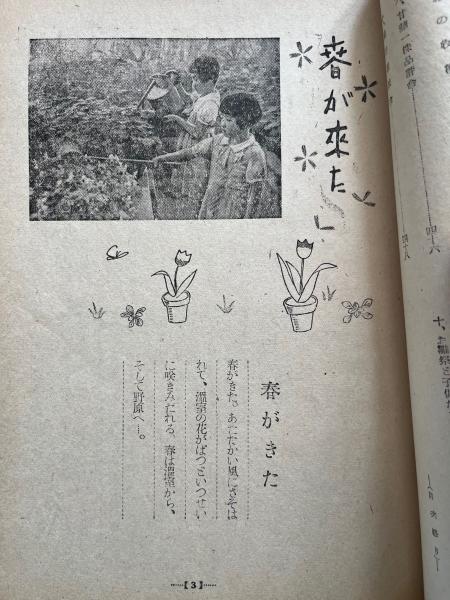 四十六
四十八
春が來た
春がきた
春がきた。あたたかい風にさそは
れて、溫室の花がぱつといつせい
に咲きみだれる。春は溫室から、
そして野原へ—。
【3】